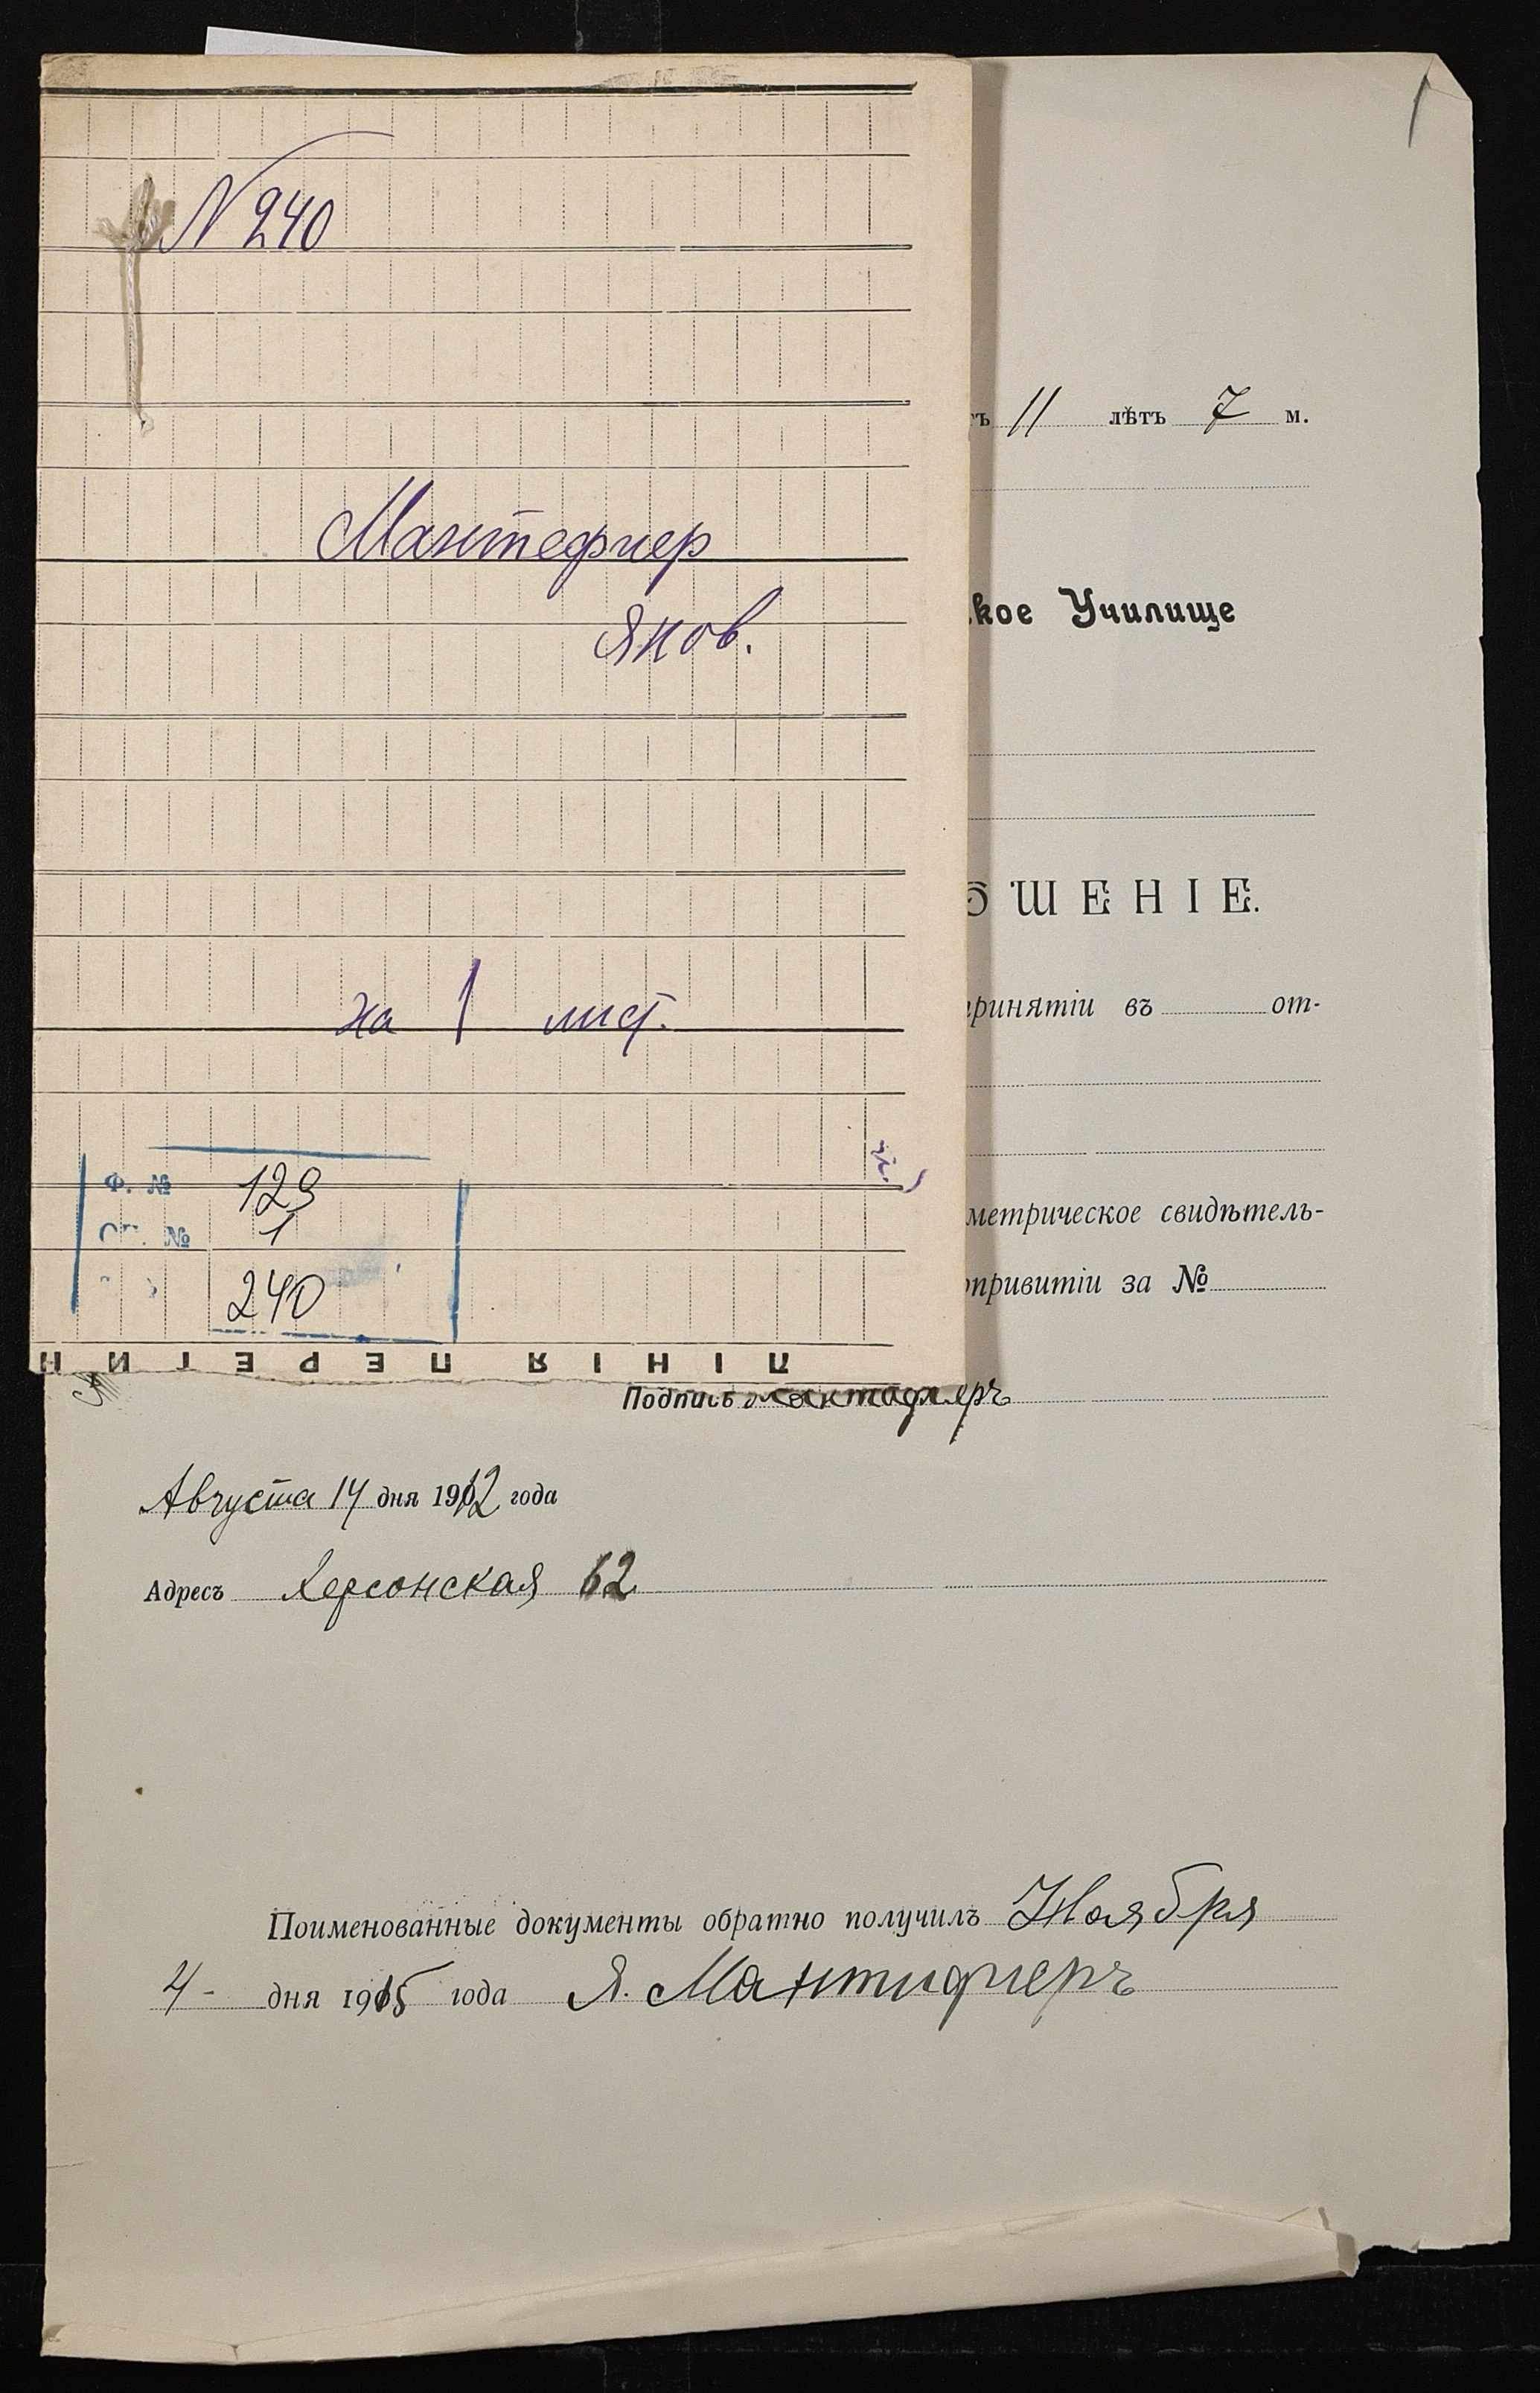 N 240
Мантефиер
Яков.
на 1 лист.
Ф. № 129
ОП. № 1
240
ЛІНІЯ ПЕРЕГИН
1
ъ 11 лѣтъ 7 м.
кое Училище
ОШЕНІЕ.
ринятіи въ от-
метрическое свидѣтель-
опривитіи за №
Подпись
Августа 14 дня 1912 года
Адресъ Херсонская 62
Поименованные документы обратно получилъ Ноября
4- дня 1915 года Я. Мантифиеръ